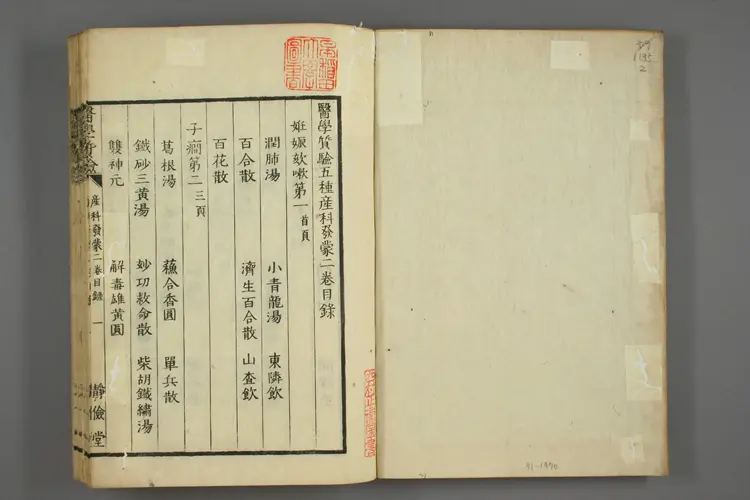 醫學質驗五種産科發蒙二卷目錄
妊娠欬嗽第一 首頁
潤肺湯 小青龍湯 東隣飲
百合散 濟生百合散 山查飲
百花散
子癇第二 三頁
葛根湯 蘓合香圓 單兵散
鐵砂三黄湯 妙功救命散 柴胡鐵繡湯
雙神元 解毒雄黄圓
産科發蒙二卷目錄 一 靜儉堂
早稲田大学図書
91-1970